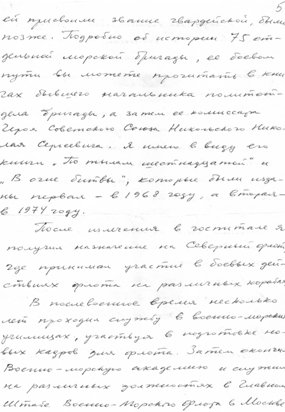 5
ей присвоили звание гвардейской, были
позже. Подробно об истории 75 от-
дельной морской бригады, ее боевом
пути вы можете прочитать в кни-
гах бывшего начальника политот-
дела бригады, а затем ее комиссара
Героя Советского Союза Никольского Нико-
лая Сергеевича. Я имею в виду его
книги „По тылам шестнадцатой" и
„В огне битвы", которые были изда-
ны первая - в 1968 году, а вторая-
в 1974 году.
После излечения в госпитале я
получил назначение на Северный флот,
где принимал участие в боевых дей-
ствиях флота на различных кораблях
В послевоенное время несколько
лет проходил службу в военно-морских
училищах, участвуя в подготовке но-
вых кадров для флота. Затем окончил
Военно-морскую академию и служил
на различных должностях в Главном
Штабе Военно-Морского Флота в Москве